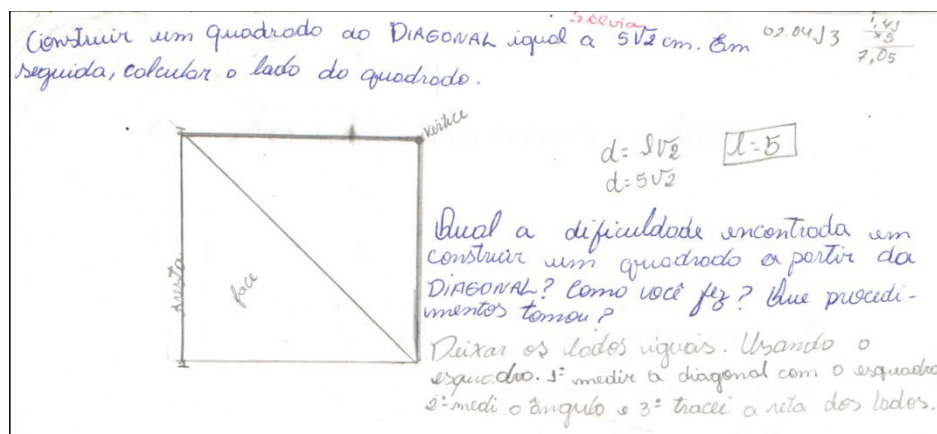 Silvia
Construir um quadrado ao DIAGONAL igual a 5√2 cm. Em
seguida, calcular o lado do quadrado.
02.04.13
1,41
x5
7,05
vértice
aresta
face
d= l√2
d= 5√2
l=5
Qual a dificuldade encontrada em
construir um quadrado a partir da
DIAGONAL? Como você fez? Que procedi-
mentos tomou?
Deixar os lados iguais. Usando o
esquadro. 1º medir a diagonal com o esquadro
2º medi o ângulo e 3º tracei a reta dos lados.